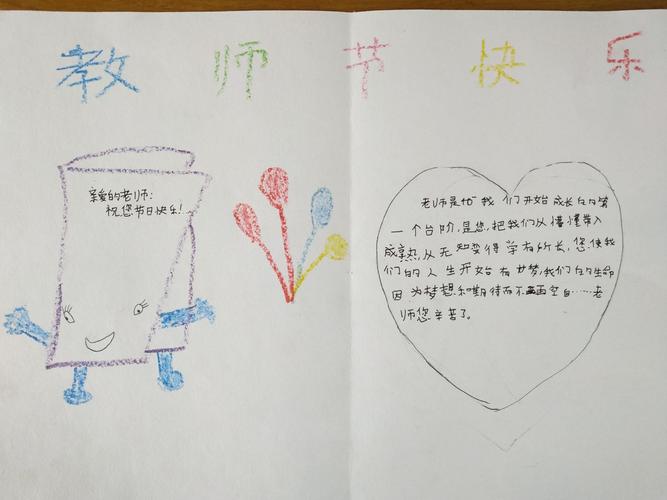 教师节快乐
亲爱的老师:
祝您节日快乐!
老师是您我们开始成长的第
一个台阶,是您,把我们从懵懂带入
成熟,从无知变得学有所长,您使我
们的人生开始有梦,我们的生命
因为梦想和期待而不再空白……老
师您辛苦了。